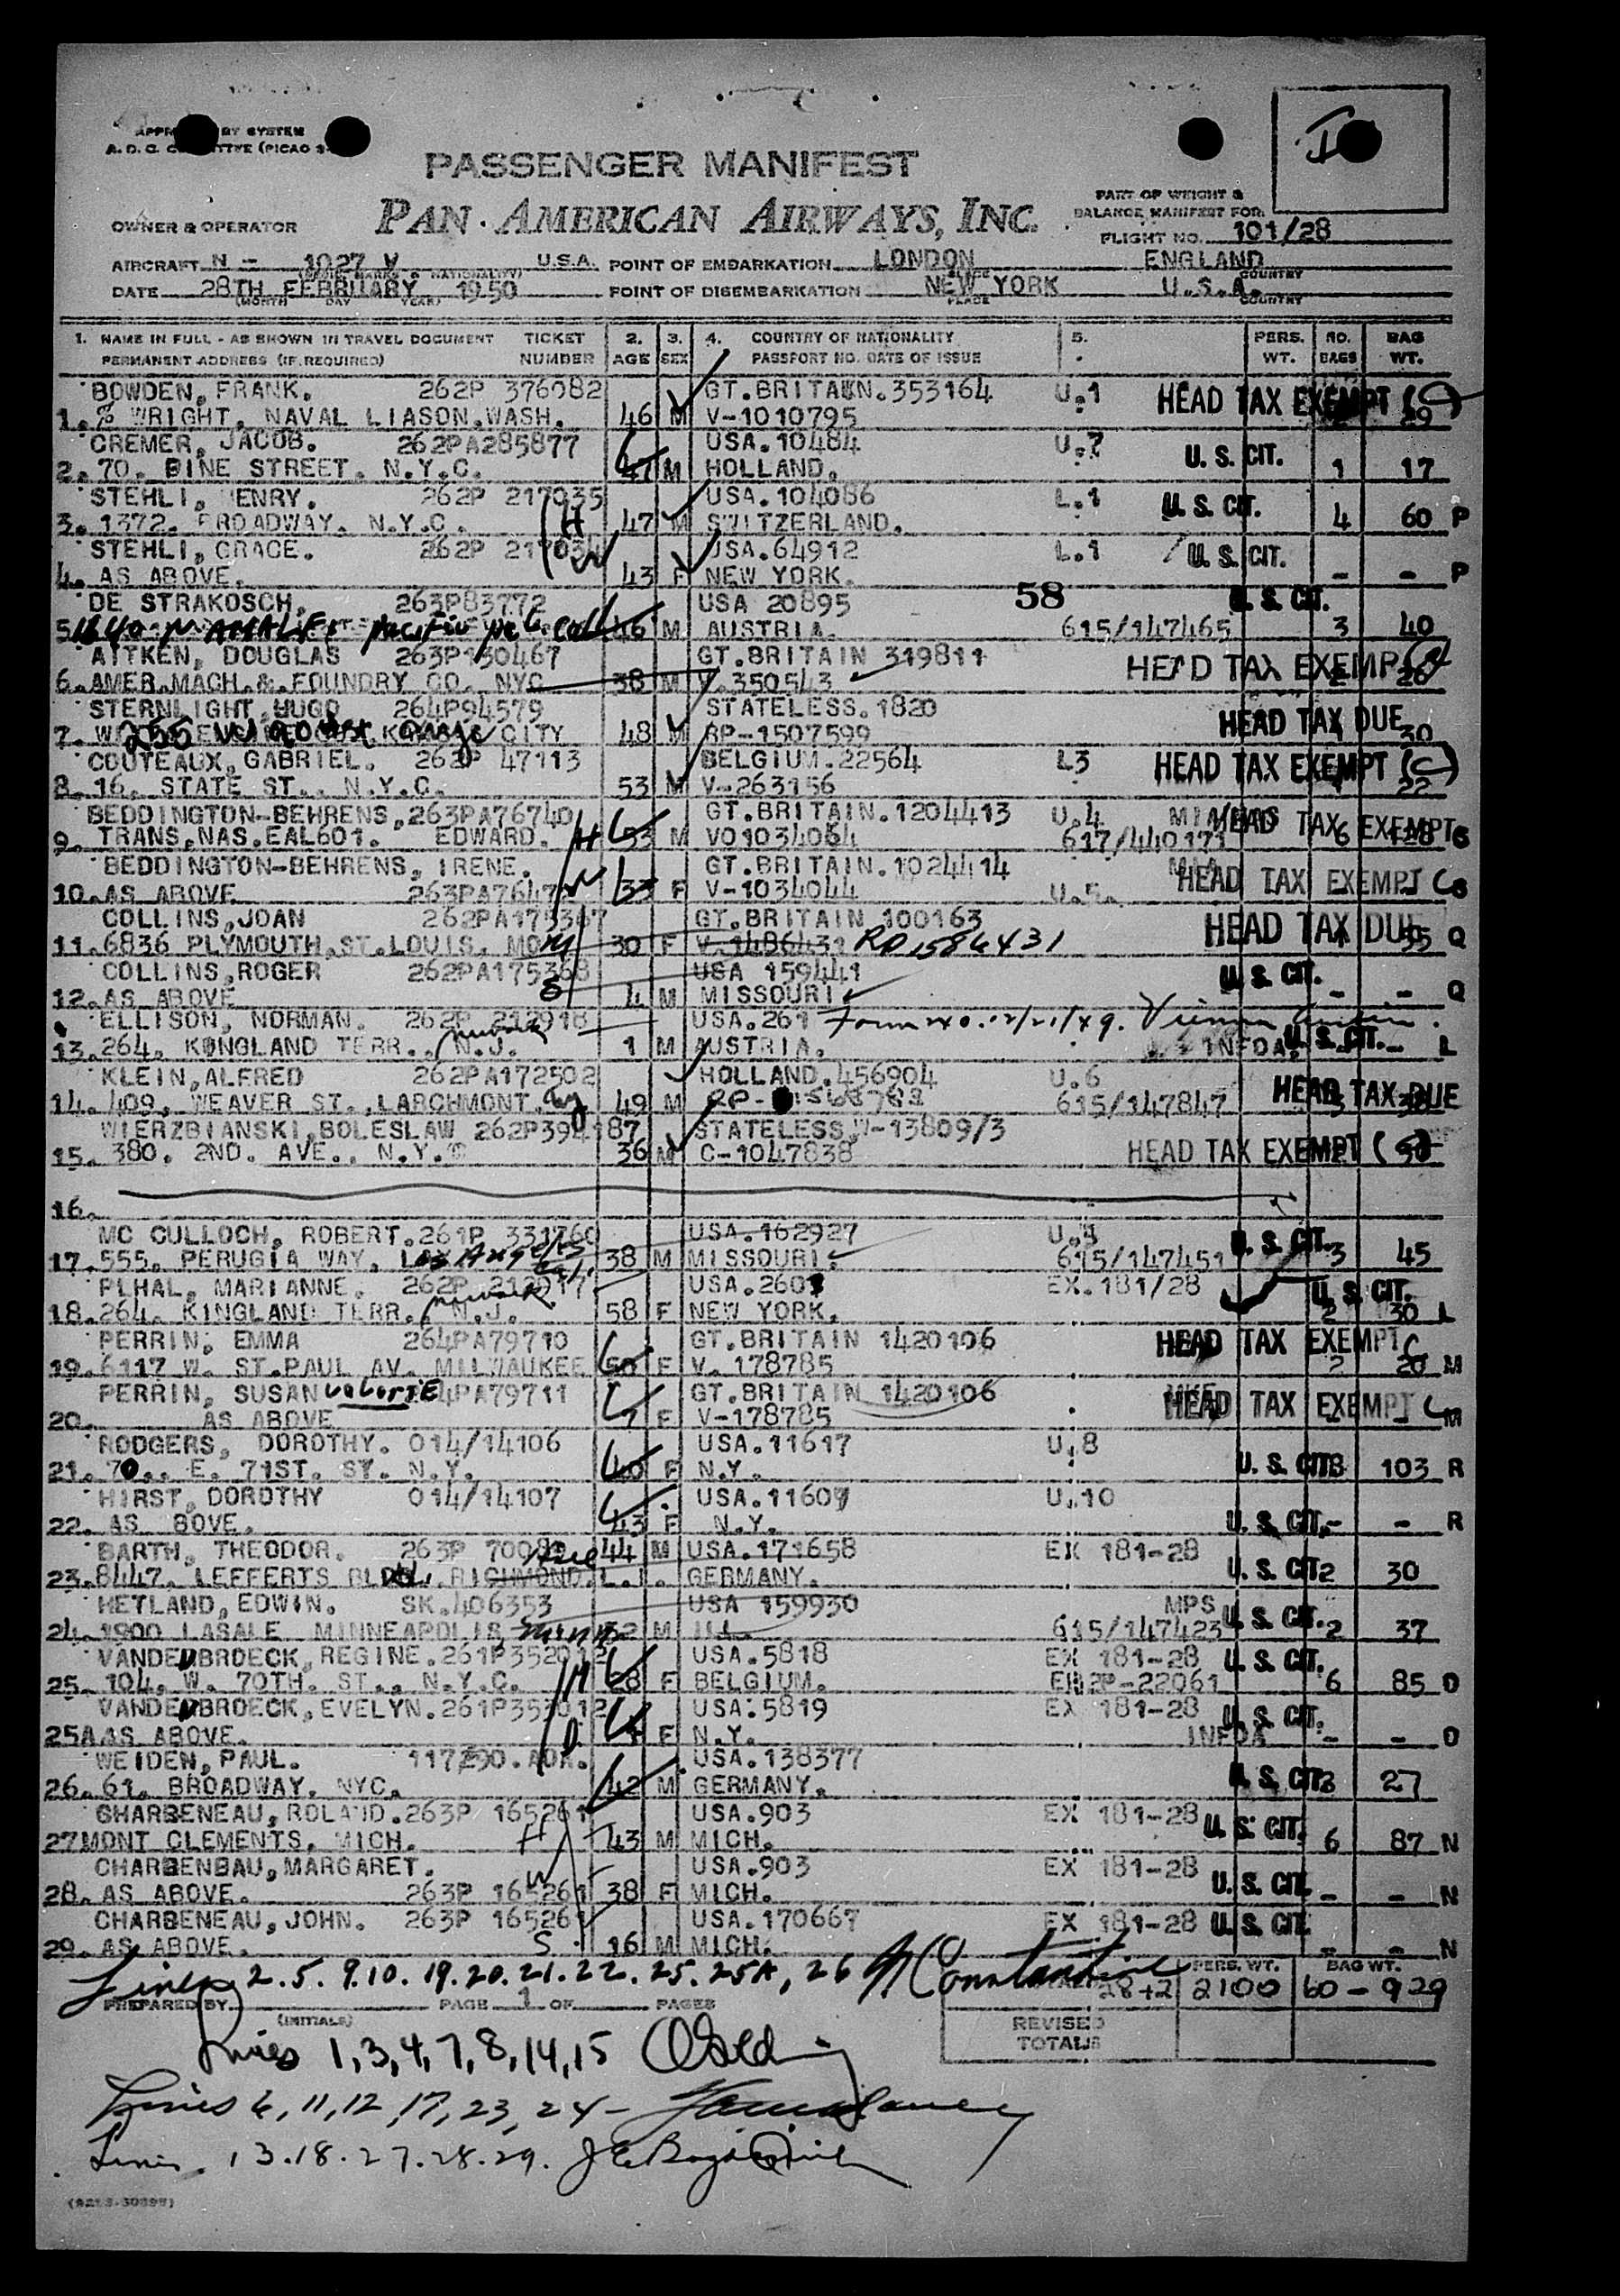 I
PASSENGER MANIFEST
PAN AMERICAN AIRWAYS, INC.
PART OF WEIGHT &
BALANCE MANIFEST FOR
OWNER & OPERATOR
FLIGHT NO. 101/28
AIRCRAFT N - 1027 V U.S.A. POINT OF EMBARKATION LONDON ENGLAND
DATE 28TH FEBRUARY 1950 POINT OF DISEMBARKATION NEW YORK U.S.A.
1. NAME IN FULL - AS SHOWN IN TRAVEL DOCUMENT TICKET 2. 3. 4. COUNTRY OF NATIONALITY 5. PERS. NO. BAG
PERMANENT ADDRESS (IF REQUIRED) NUMBER AGE SEX PASSPORT NO. DATE OF ISSUE WT. BAGS WT.
BOWDEN, FRANK. 262P 376082 GT.BRITAIN.353164 U.1 HEAD TAX EXEMPT
1. % WRIGHT, NAVAL LIASON.WASH. 46 M V-1010795 29
CREMER, JACOB. 262PA285877 USA.10484 U.7 U. S. CIT.
2. 70. PINE STREET. N.Y.C. 47 M HOLLAND. 1 17
STEHLI, HENRY. 262P 217035 USA.104086 L.1 U. S. CIT.
3. 1372. BROADWAY. N.Y.C. H 47 M SWITZERLAND. 4 60 P
STEHLI, GRACE. 262P USA.64912 L.1 U. S. CIT.
4. AS ABOVE. W 43 F NEW YORK. - - P
DE STRAKOSCH, 263P83772 USA 20895 58 U. S. CIT.
5. 46 M AUSTRIA. 615/147465 3 40
AITKEN, DOUGLAS 263P130467 GT.BRITAIN 319811 HEAD TAX EXEMPT
6. AMER.MACH.&.FOUNDRY CO. NYC 38 M V.350543 26
STERNLIGHT, HUGO 264P94579 STATELESS.1820 HEAD TAX DUE
7. 255 CITY 48 M RP-1507599 30
COUTEAUX, GABRIEL. 262P 47113 BELGIUM.22564 L3 HEAD TAX EXEMPT
8. 16. STATE ST.. N.Y.C. 53 M V-263156 22
BEDDINGTON-BEHRENS, 263PA76740 GT.BRITAIN.1204413 U.4 HEAD TAX EXEMPT
9. TRANS,NAS.EAL601. EDWARD. H 53 M VO1034064 617/440171 6 128 S
BEDDINGTON-BEHRENS, IRENE. GT.BRITAIN.1024414 HEAD TAX EXEMPT
10. AS ABOVE W 33 F V-1034044 U.5. S
COLLINS,JOAN 262PA175367 GT.BRITAIN 100163 HEAD TAX DUE
11. 6836 PLYMOUTH,ST.LOUIS, MO M 30 F V.1486431 RP1586431 55 Q
COLLINS,ROGER 262PA175368 USA 159441 U. S. CIT.
12. AS ABOVE S 4 M MISSOURI - - Q
ELLISON, NORMAN. 262P 212918 USA.261
13. 264. KONGLAND TERR.. N.J. 1 M AUSTRIA. INFOA U. S. CIT. - L
KLEIN,ALFRED 262PA172502 HOLLAND.456904 U.6 HEAD TAX DUE
14. 409, WEAVER ST.,LARCHMONT. NY 49 M 615/147847
WIERZBIANSKI,BOLESLAW STATELESS.W-13809/3
15. 380. 2ND. AVE.. N.Y. 36 M C-1047838 HEAD TAX EXEMPT
16.
MC CULLOCH, ROBERT.261P 331760 USA.162927 U. S. CIT.
17. 555. PERUGIA WAY, Los Angeles Cal. 38 M MISSOURI. 615/147451 3 45
PLHAL, MARIANNE. 262P 212917 USA. EX.181/28 U. S. CIT.
18. 264. KINGLAND TERR. Newark N.J. 58 F NEW YORK. 2 30 L
PERRIN, EMMA 264PA79710 GT.BRITAIN 1420106 HEAD TAX EXEMPT
19. 6117 W. ST.PAUL AV. MILWAUKEE 50 F V. 178785 2 20 M
PERRIN, SUSAN VALERIE PA79711 GT.BRITAIN 1420106 HEAD TAX EXEMPT
20. AS ABOVE 7 F V-178785 M
RODGERS, DOROTHY. 014/14106 USA.11617 U.8
21. 70.. E. 71ST. ST. N.Y. 40 F N.Y. U. S. CIT. 103 R
HIRST, DOROTHY 014/14107 USA.11609 U.10
22. AS BOVE. 43 F N.Y. U. S. CIT. - - R
BARTH, THEODOR. 263P 44 M USA.171658 EX 181-28
23. 8447. LEFFERTS BLD. RICHMOND. Hill L.I. GERMANY. U. S. CIT. 2 30
HETLAND, EDWIN. SK.406353 USA 159930 MPS U. S. CIT.
24. 1900 LASALE MINNEAPOLIS, Minn 32 M ILL. 615/147423 2 37
VANDENBROECK, REGINE. USA.5818 EX 181-28 U. S. CIT.
25. 104. W. 70TH. ST.. N.Y.C. M 28 F BELGIUM. 6 85 O
VANDENBROECK, EVELYN. USA.5819 EX 181-28 U. S. CIT.
25A AS ABOVE. D F N.Y. INFOA - - O
WEIDEN, PAUL. USA.138377
26. 61. BROADWAY, NYC. 42 M GERMANY. U. S. CIT. 27
CHARBENEAU, ROLAND.263P 165261 USA.903 EX 181-28 U. S. CIT.
27 MONT CLEMENTS, MICH. H 43 M MICH. 6 87 N
CHARBENBAU, MARGARET. USA.903 EX 181-28
28. AS ABOVE. W 263P 165261 38 F MICH. U. S. CIT. - - N
CHARBENEAU, JOHN. 263P 165261 USA.170667 EX 181-28 U. S. CIT.
29. AS ABOVE. S 16 M MICH. - - N
Lines 2.5.9.10.19.20.21.22.25.25A, 26 Constantine
28+2 PERS. WT. 2100 BAG WT. 60 - 929
PREPARED BY PAGE 1 OF PAGES
(INITIALS)
REVISED
TOTALS
Lines 1,3,4,7,8,14,15
Lines 6,11,12,17,23,24 -
Lines 13.18.27.28.29.